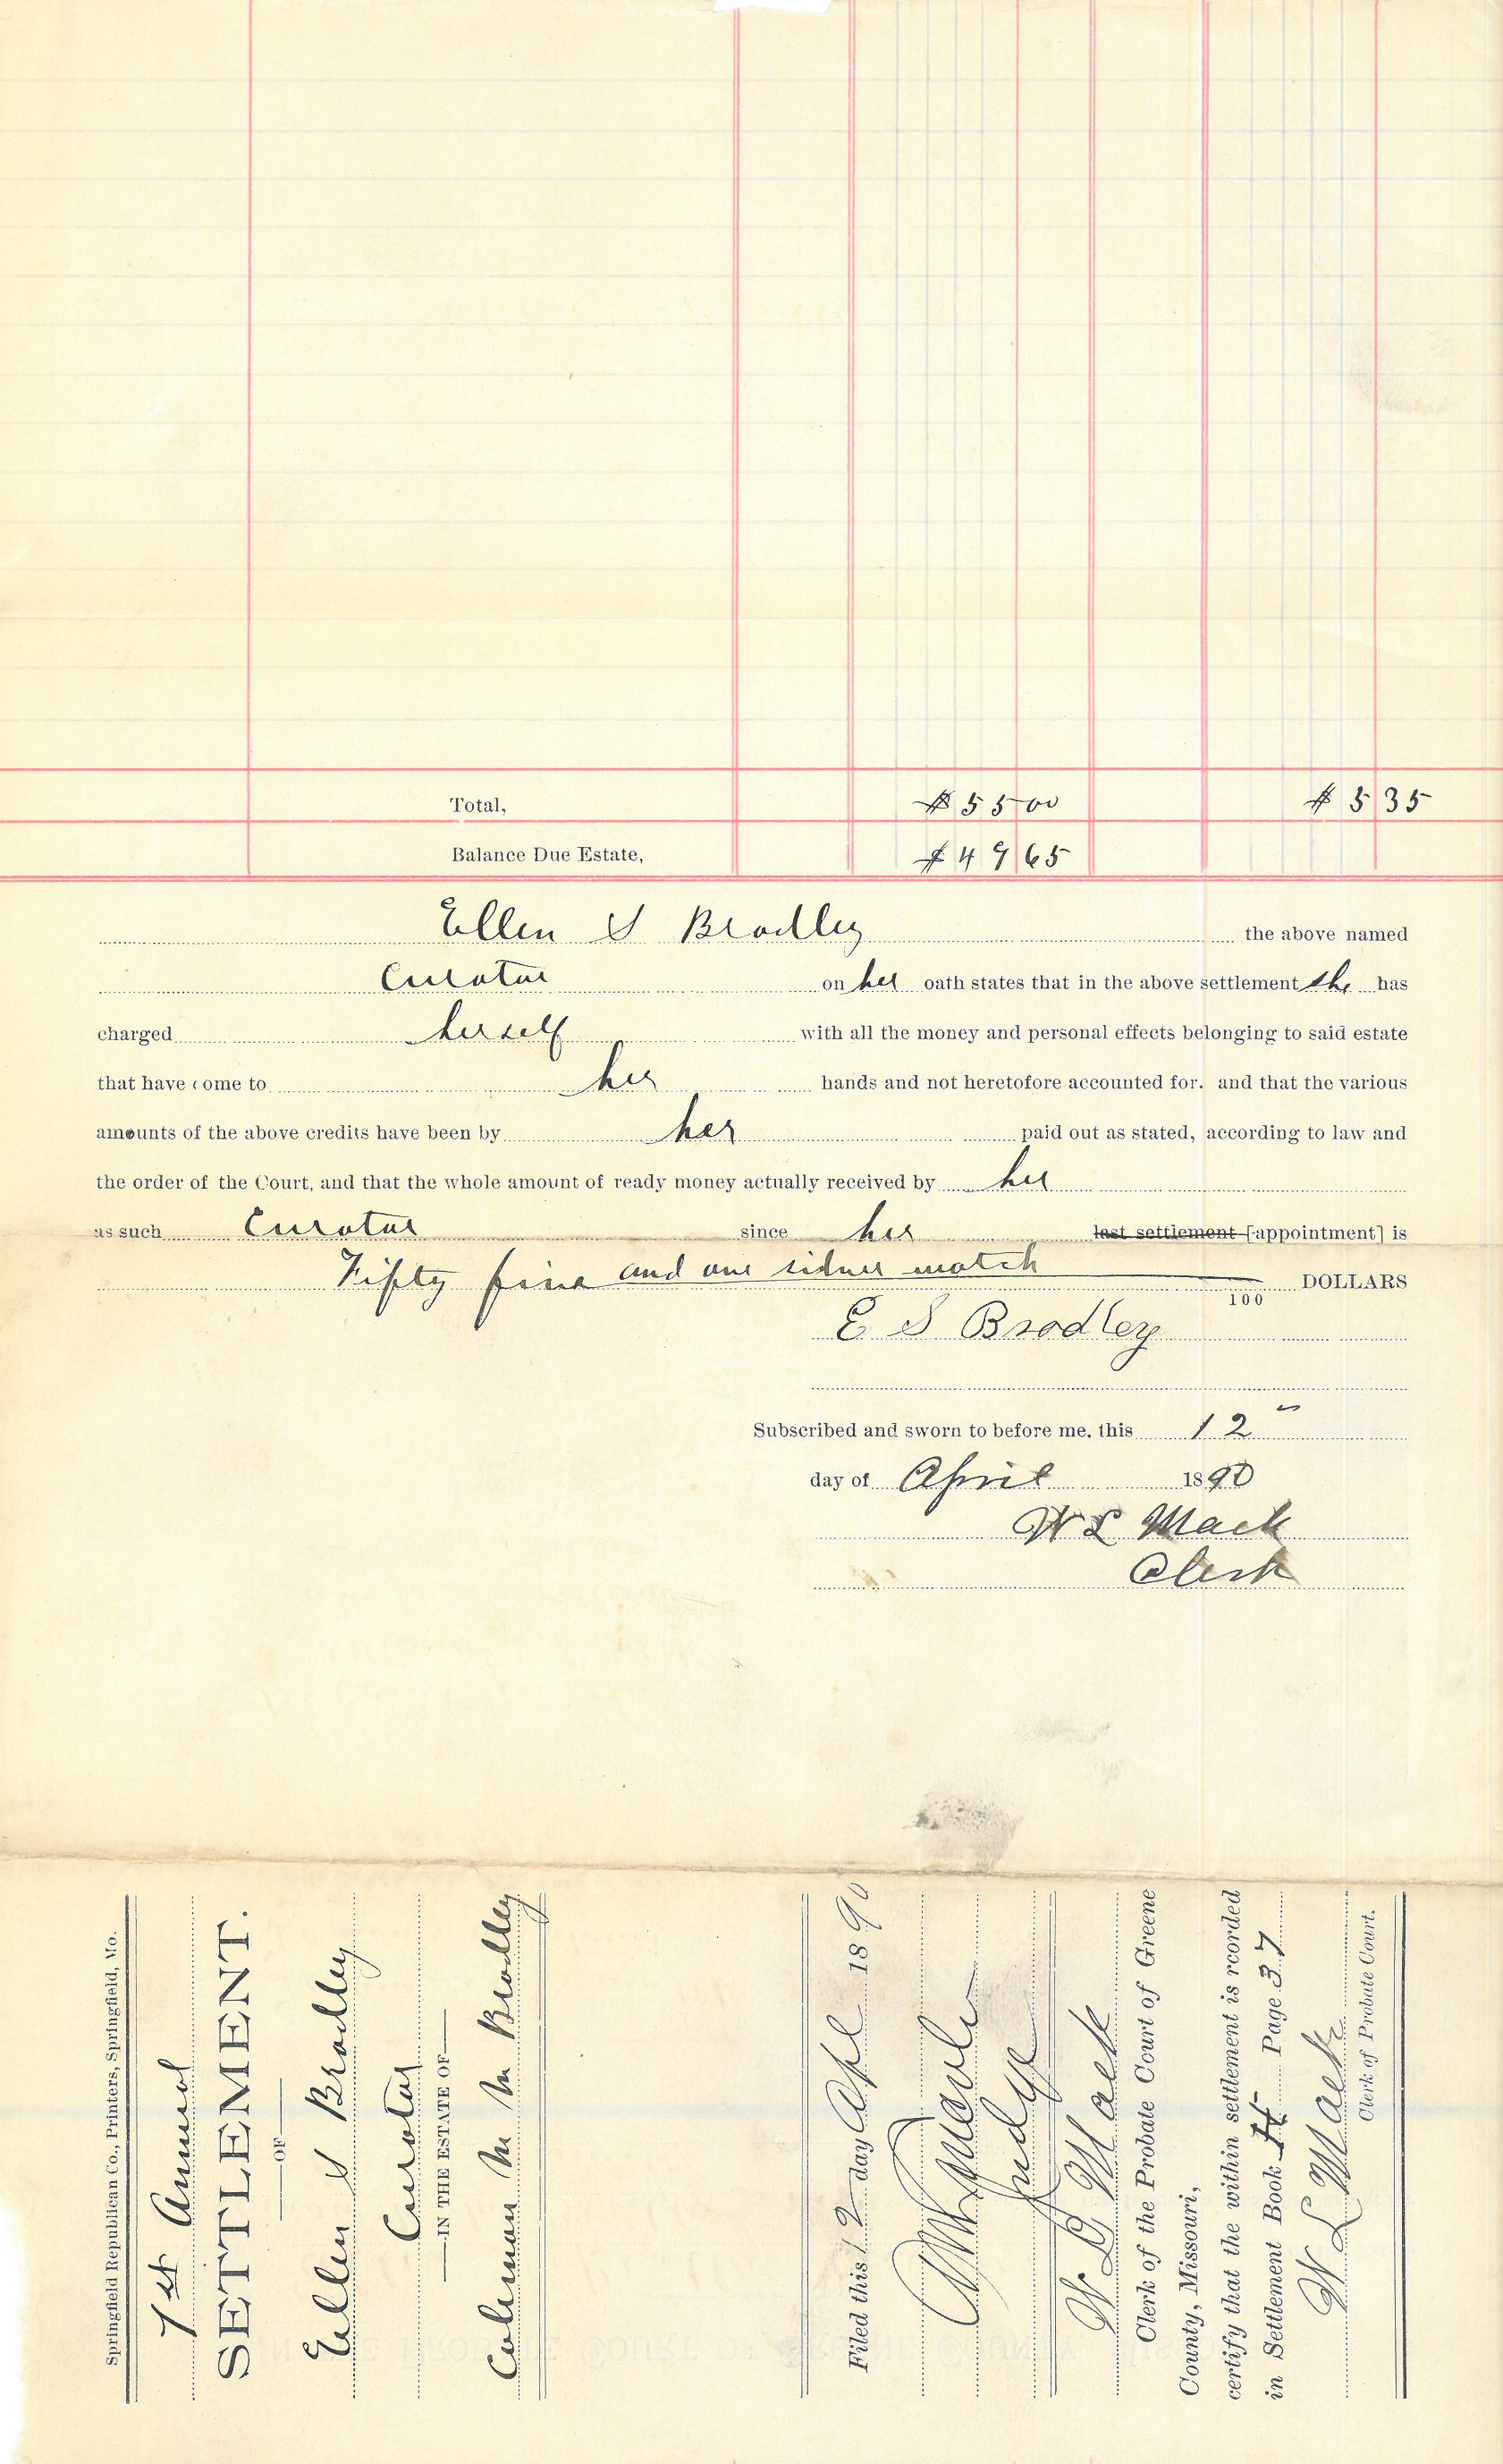 Total, $55 00 $5 35
Balance Due Estate, $49 65
Ellen S Bradley the above named
Curator on her oath states that in the above settlement she has
charged herself with all the money and personal effects belonging to said estate
that have come to her hands and not heretofore accounted for. and that the various
amounts of the above credits have been by her paid out as stated, according to law and
the order of the Court, and that the whole amount of ready money actually received by her
as such Curator since her last settlement [appointment] is
Fifty five and one silver watch 100 DOLLARS
E S Bradley
Subscribed and sworn to before me, this 12"
day of April 1890
W L Mack
Clerk
Springfield Republican Co., Printers, Springfield, Mo.
1st Annual
SETTLEMENT.
OF
Ellen S Bradley
Curator
IN THE ESTATE OF
Coleman M M Bradley
Filed this 12 day Apl 1890
Judge
W L Mack
Clerk of the Probate Court of Greene
County, Missouri,
certify that the within settlement is rcorded
in Settlement Book H Page 37
W L Mack
Clerk of Probate Court.